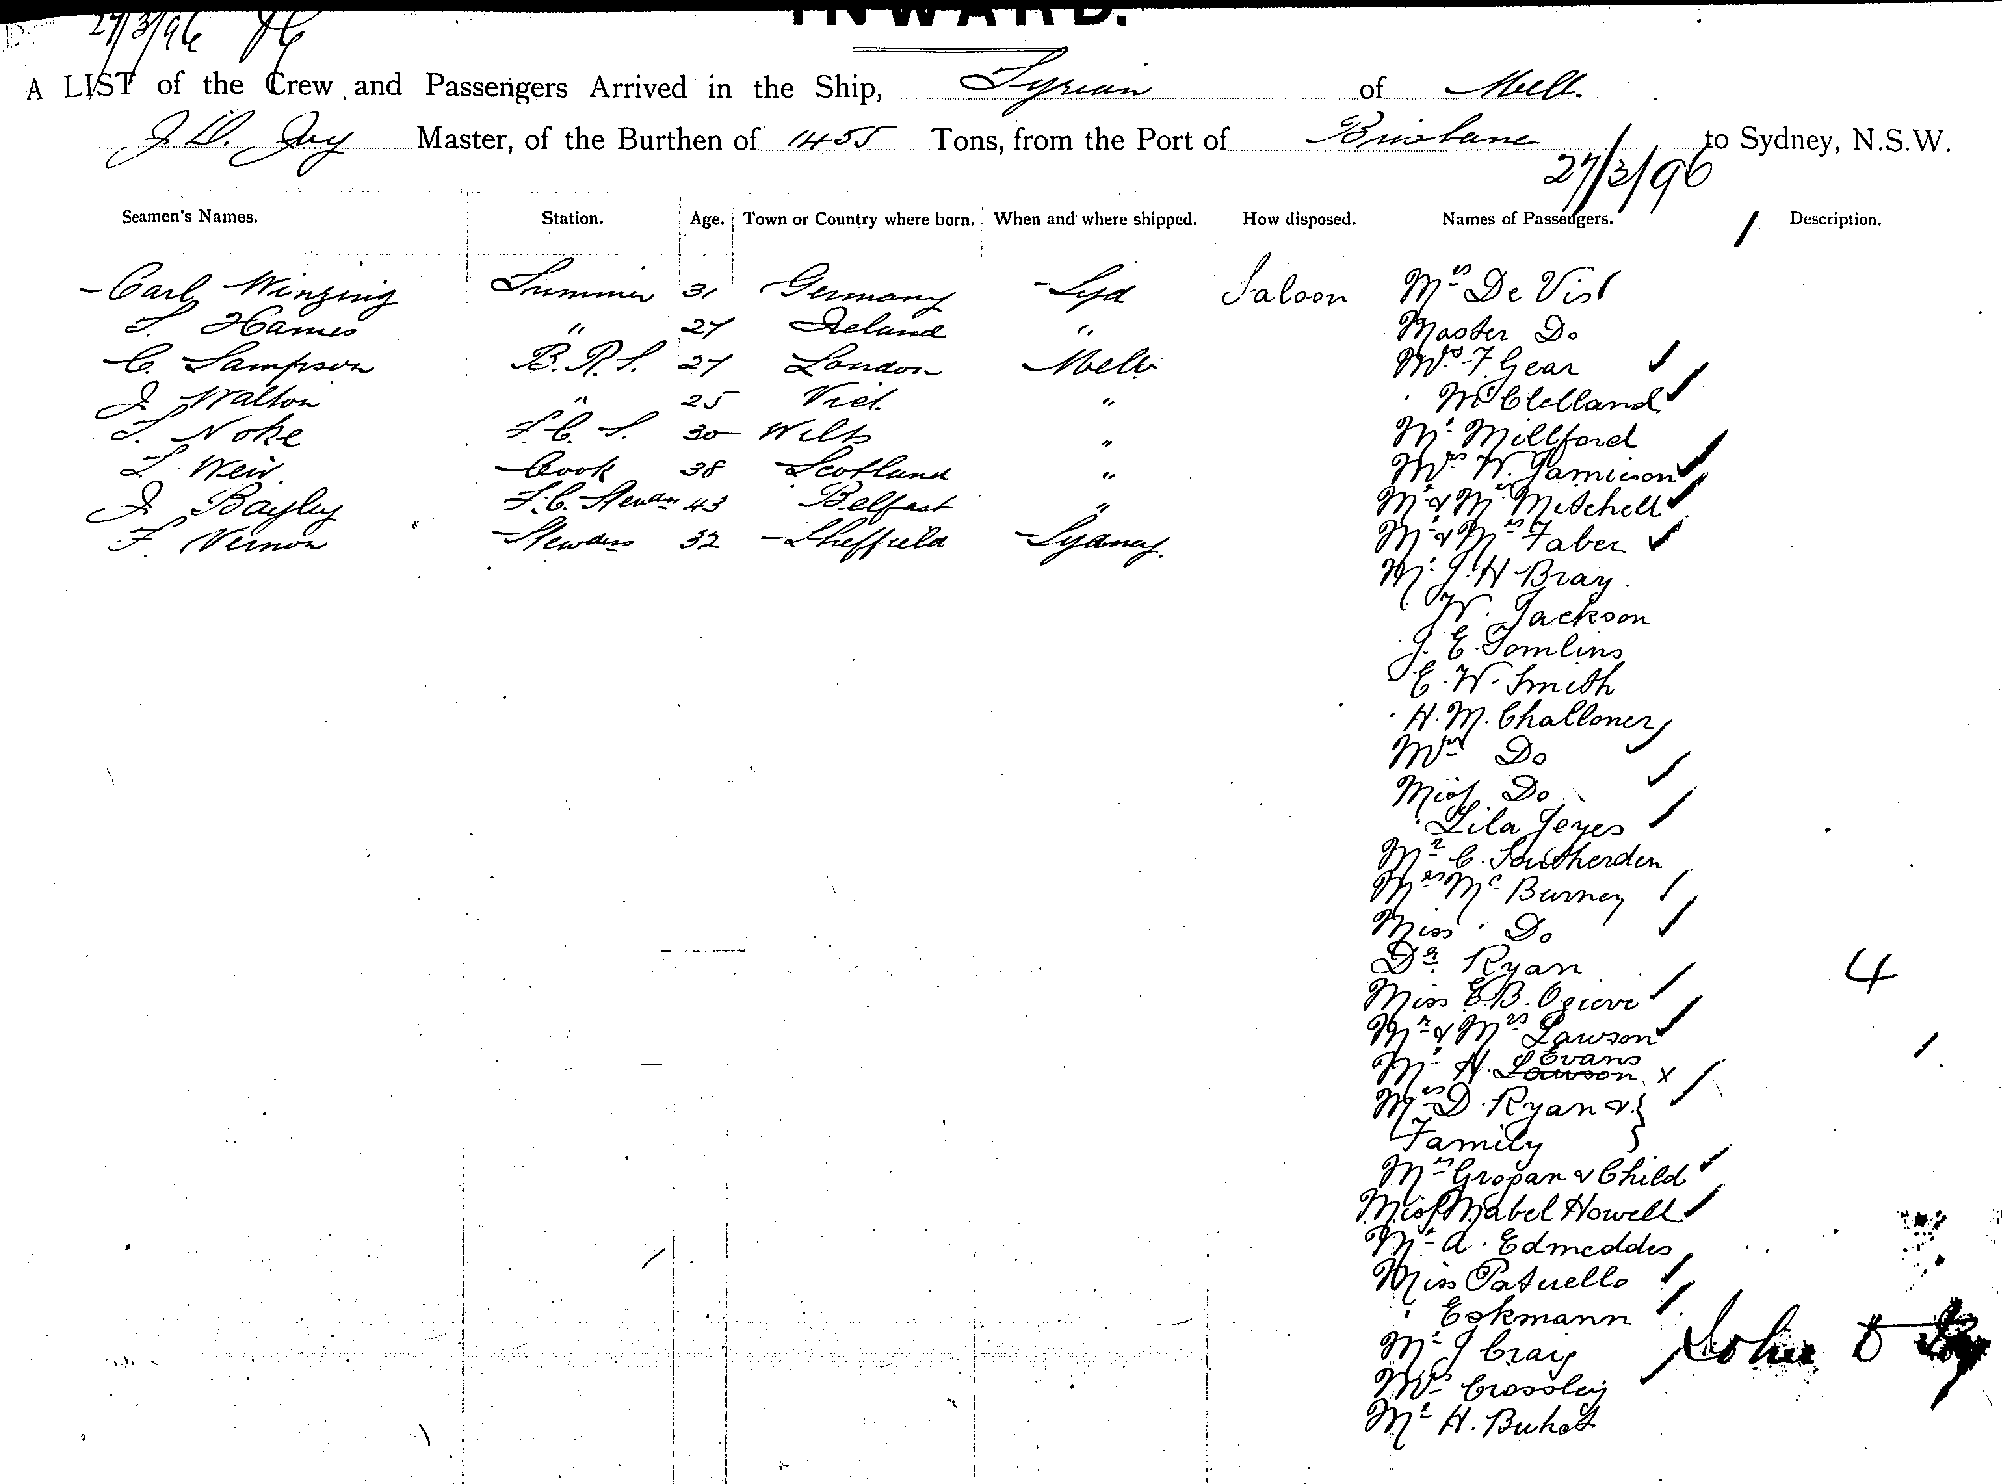 INWARD.
27/3/96
A LIST of the Crew and Passengers Arrived in the Ship, Tyrian of Melb.
J. D. Joy Master, of the Burthen of 1455 Tons, from the Port of Brisbane to Sydney, N.S.W.
27/3/96
Seamen's Names. Station. Age. Town or Country where born. When and where shipped. How disposed. Names of Passengers. Description.
Carl Winzing Trimmer 31 Germany Syd Saloon Mrs De Vis
T. Hames " 27 Ireland " Master Do
C. Sampson B.R.S. 27 London Melb Mrs F. Gear
J. Walton " 25 Vict. " " McClelland
T. Noke F.C.S. 30 Wilts " Mr Millford
T. Weir Cook 38 Scotland " Mrs W. Jamieson
J. Bayley F.C. Stewdss 43 Belfast " Mr & Mrs Mitchell
F. Vernon Stewdss 32 Sheffield Sydney. Mr & Mrs Faber
Mr J. H Bray
W. Jackson
J. E. Tomlins
E. W. Smith
H. M. Challoner
Mrs Do
Miss Do
" Lila Joyes
Mr C. Southerden
Mrs McBurney
Miss Do
Dr Ryan
4
Miss E. B. Ogilvie
Mr & Mrs Lawson
Evans
Mr H. Lawson x
Mrs D. Ryan & }
Family
Mrs Gropan & Child
Miss Mabel Howell
Mr A. Edmeddes
Miss Patuello
" Eckmann
Mr J Craig John D Joy
Mrs Crossley
Mr H. Buhot